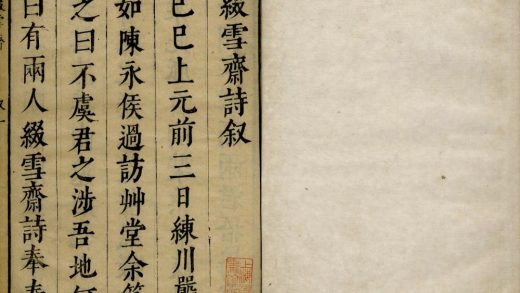 綴雪齋詩叙
己巳上元前三日練川嚴
如陳永侯過訪艸堂余
之曰不虞君之涉吾地
曰有兩人綴雪齋詩奉